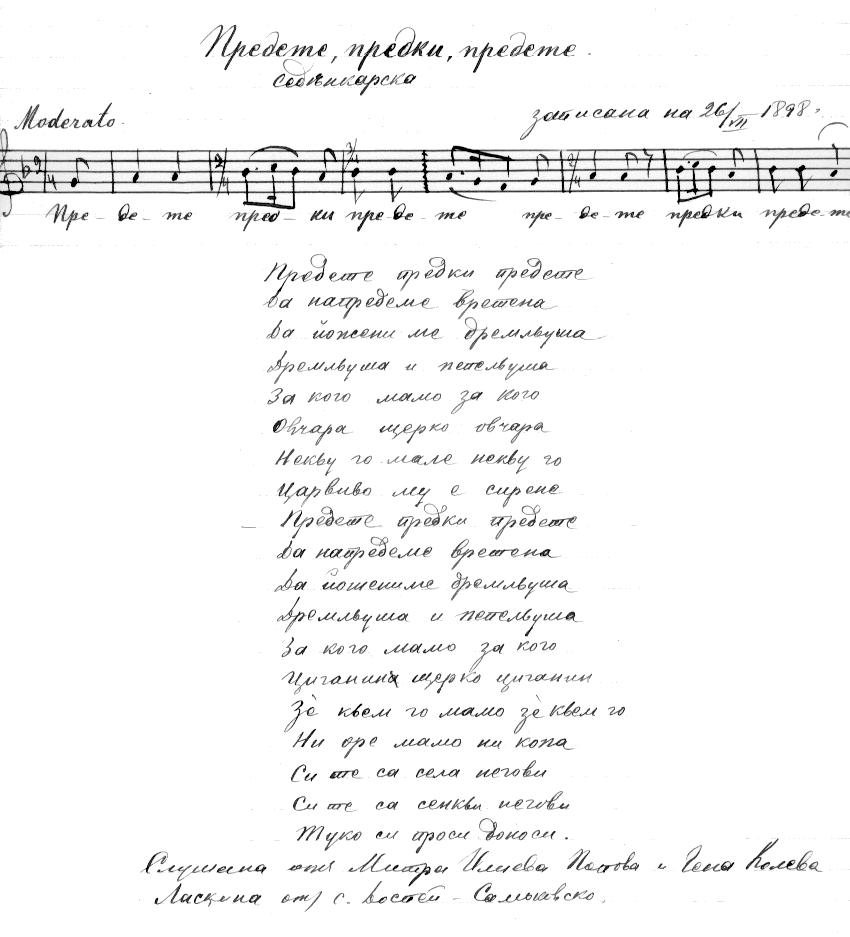 Предете, предки, предете.
Седѣнкарска
Moderato.
записана на 26/VII 1898.
Пре - де - те пред - ки пре - де - те пре - де - те предки предe - те
Предете предки предете
Да напредеме вретена
Да йожени ме дремльуша
Дремльуша и пепельуша
За кого мамо за кого
Овчара щерко овчара
Некву го мале некву го
Царвиво му е сирене
— Предете предки предете
Да напредеме вретена
Да йожениме дремльуша
Дремльуша и пепельуша
За кого мамо за кого
Циганина щерко циганин
Зѐ квем го мамо зѐ квем го
Ни оре мамо ни копа
Си те са села негови
Си те са сенкьи негови
Туко си проси доноси.
Слушана отъ Митра Илиева Попова и Гена Колева
Ласкина отъ с. Доспей - Самоковско.